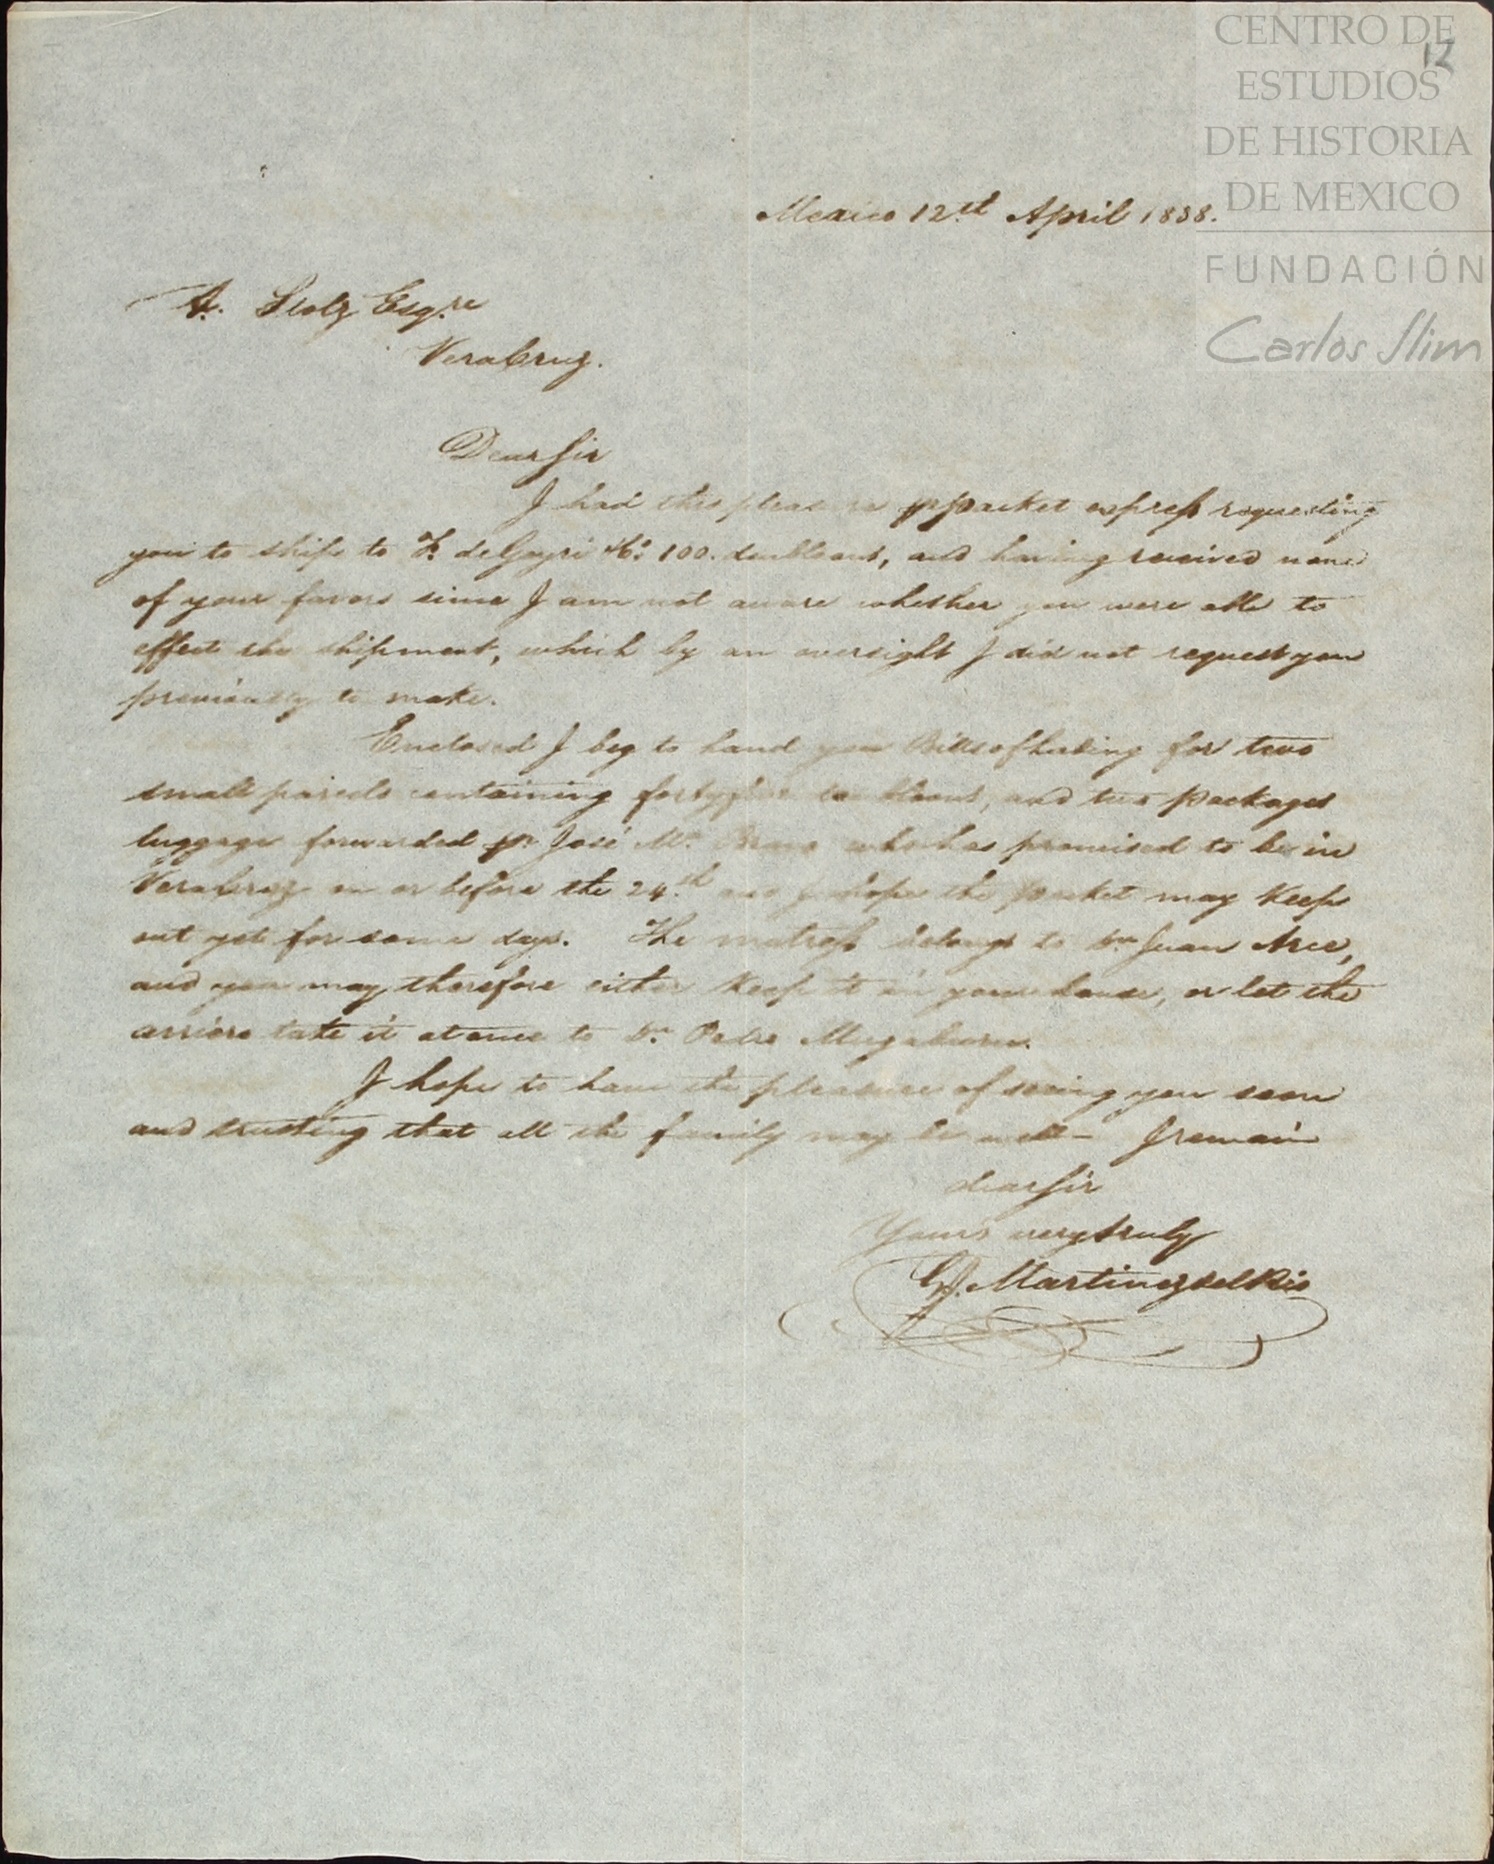 CENTRO DE
12
ESTUDIOS
DE HISTORIA
DE MEXICO
FUNDACIÓN
Carlos Slim
Mexico 12th April 1838.
A. Stolz Esqre
VeraCruz.
Dear Sir
I had this pleasure pr packet express requesting
you to ship to F. de Goyri &Co 100. doubloons, and having received none
of your favors since I am not aware whether you were able to
effect the shipment, which by an oversight I did not request you
previously to make.
Enclosed I beg to hand you Bills of Lading for two
small parcels containing forty five doubloons, and two packages
luggage forwarded pr José Ma Bravo who has promised to be in
VeraCruz on or before the 24th and I hope the packet may keep
out yet for some days. The matress belongs to Dn Juan Arce,
and you may therefore either keep it in your house, or let the
arriero take it at once to Dn Pedro
I hope to have the pleasure of seeing you soon
and trusting that all the family may be well – I remain
dear Sir
Yours very truly
Martinez del Rio